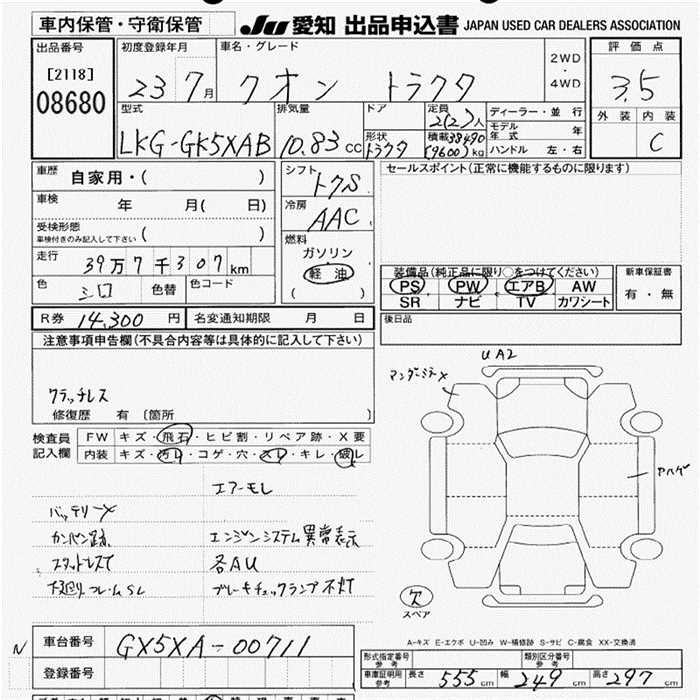 車内保管・守衛保管
JU 愛知 出品申込書 JAPAN USED CAR DEALERS ASSOCIATION
出品番号
[2118]
08680
初度登録年月
23 7月
車名・グレード
クオン トラクタ
2WD・4WD
評価点
3.5
外装 内装
C
型式
LKG-GK5XAB
排気量
10.83 cc
ドア
形状
トラクタ
定員
2(2)人
積載 38490
(9600)kg
ディーラー・並行
モデル年式 年
ハンドル 左・右
車歴
自家用・( )
車検 年 月( 日)
受検形態
車検付きのみ記入して下さい ( )
走行
39万7千307km
色
シロ
色替
色コード
シフト
冷房
AAC
燃料
ガソリン
軽油
( )
セールスポイント(正常に機能するものに限ります)
装備品(純正品に限り○をつけてください)
PS PW エアB AW
SR ナビ TV カワシート
新車保証書
有・無
R券 14,300円
名変通知期限 月 日
後日品
注意事項申告欄(不具合内容等は具体的に記入して下さい)
クラッチレス
修復歴 有〔箇所 〕
検査員記入欄
FW キズ・飛石・ヒビ割・リペア跡・X要
内装 キズ・汚レ・コゲ・穴・スレ・キレ・破レ
エアーモレ
バッテリーX
カンバン跡
エンジンシステム異常表示
スタットレスT
各AU
下廻りフレームSL
ブレーキチェックランプ不灯
UA2
アンダーミラーX
ヤハゲ
欠
スペア
A-キズ E-エクボ U-凹み W-補修跡 S-サビ C-腐食 XX-交換済
N
車台番号
GX5XA-00711
登録番号
型式指定番号
参考
類別区分番号
参考
車庫証明用
参考
長さ 555cm 幅 249cm 高さ 297cm